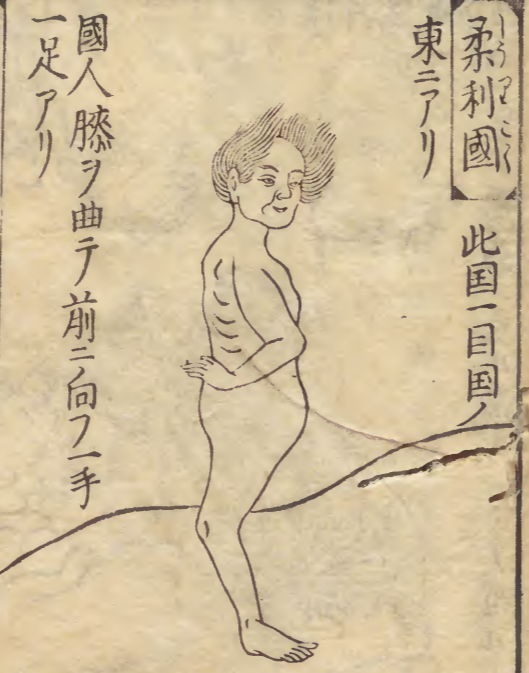 柔利國
じうりこく
此国一目国ノ
東ニアリ
國人膝ヲ曲テ前ニ向フ一手
一足アリ